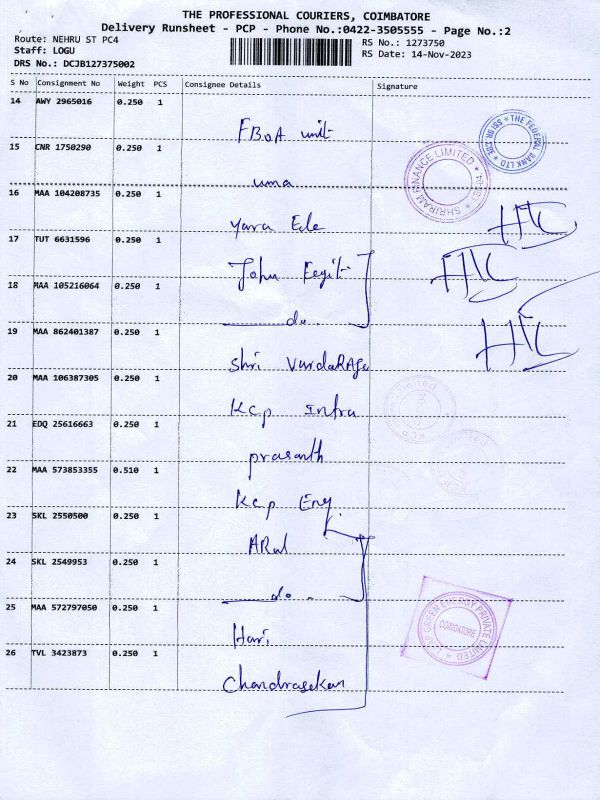 THE PROFESSIONAL COURIERS, COIMBATORE
Delivery Runsheet - PCP - Phone No.:0422-3505555 - Page No.:2
Route: NEHRU ST PC4
RS No.: 1273750
Staff: LOGU
RS Date: 14-Nov-2023
DRS No.: DCJB127375002
S No Consignment No Weight PCS Consignee Details Signature
14 AWY 2965016 0.250 1
FBOA unit
THE FEDERAL BANK LTD
15 CNR 1750290 0.250 1
SHRIRAM FINANCE LIMITED
uma
16 MAA 104208735 0.250 1
Yara Ele
17 TUT 6631596 0.250 1
John
18 MAA 105216064 0.250 1
do.
19 MAA 862401387 0.250 1
Shri VardaRAje
20 MAA 106387305 0.250 1
KCP Infra
21 EDQ 25616663 0.250 1
prasanth
22 MAA 573853355 0.510 1
KCP Eng.
23 SKL 2550500 0.250 1
ARul
24 SKL 2549953 0.250 1
do.
25 MAA 572797050 0.250 1
GREEN ENERGY PRIVATE LIMITED
COIMBATORE
Hari
26 TVL 3423873 0.250 1
Chandrasekan